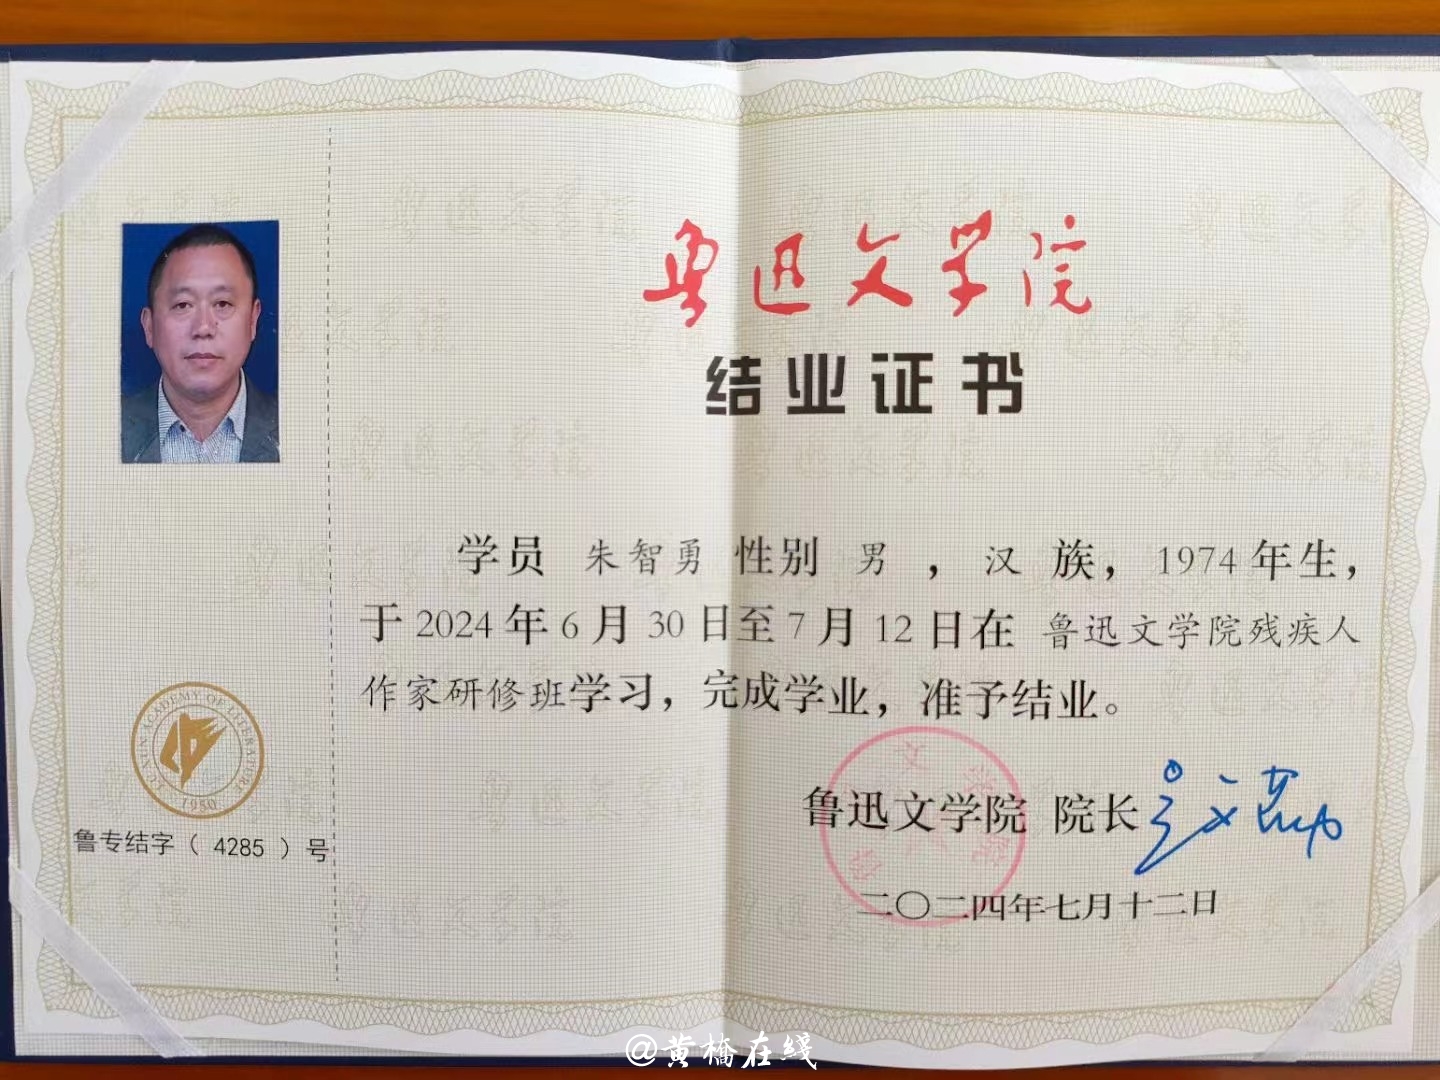 鲁迅文学院
结业证书
学员 朱智勇 性别 男 ，汉 族，1974 年生，
于 2024 年 6 月 30 日至 7 月 12 日在 鲁迅文学院残疾人
作家研修班学习，完成学业，准予结业。
LU XUN ACADEMY OF LITERATURE
1950
鲁专结字（ 4285 ）号
鲁迅文学院 院长
二〇二四年七月十二日
@黄桥在线